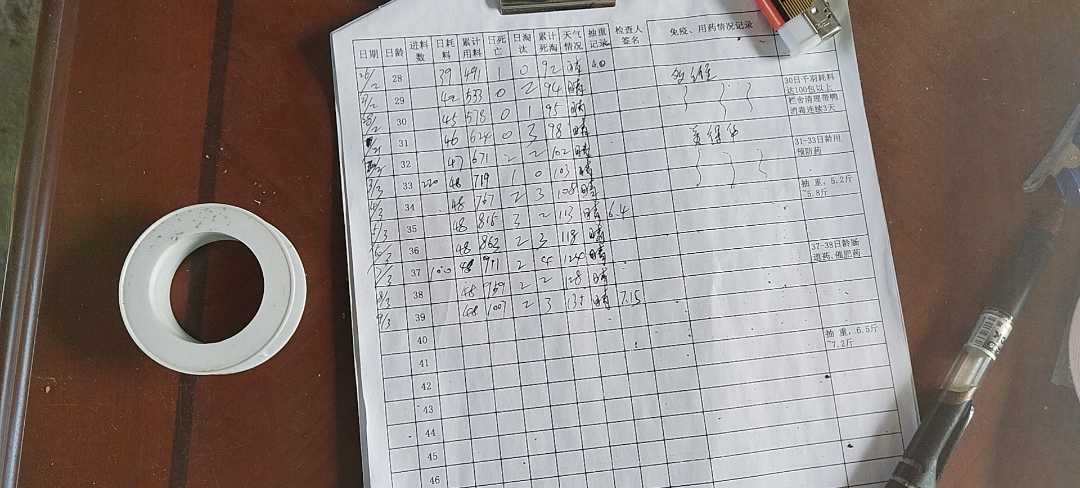 日期 日龄 进料数 日耗料 累计用料 日死亡 日淘汰 累计死淘 天气情况 抽重记录 检查人签名 免疫、用药情况记录
26/2 28 39 491 1 0 92 晴 4.0
29 42 533 0 2 94 晴
28/2 30 45 578 0 1 95 晴
31 46 624 0 3 98 晴
32 47 671 2 2 102 晴
3/3 33 220 48 719 1 0 103 晴
4/3 34 48 767 2 3 108 晴
5/3 35 48 815 3 2 113 晴 6.4
6/3 36 48 863 2 3 118 晴
7/3 37 100 48 911 2 4 124 晴
8/3 38 48 959 2 2 128 晴
9/3 39 48 1007 2 3 晴 7.15
40
41
42
43
44
45
46
30日千羽耗料
达100包以上
栏舍清理带鸭
消毒连续3天
31-33日龄用
预防药
抽 重：5.2斤
~5.8斤
37-38日龄肠
道药、催肥药
抽 重：6.5斤
~7.2斤